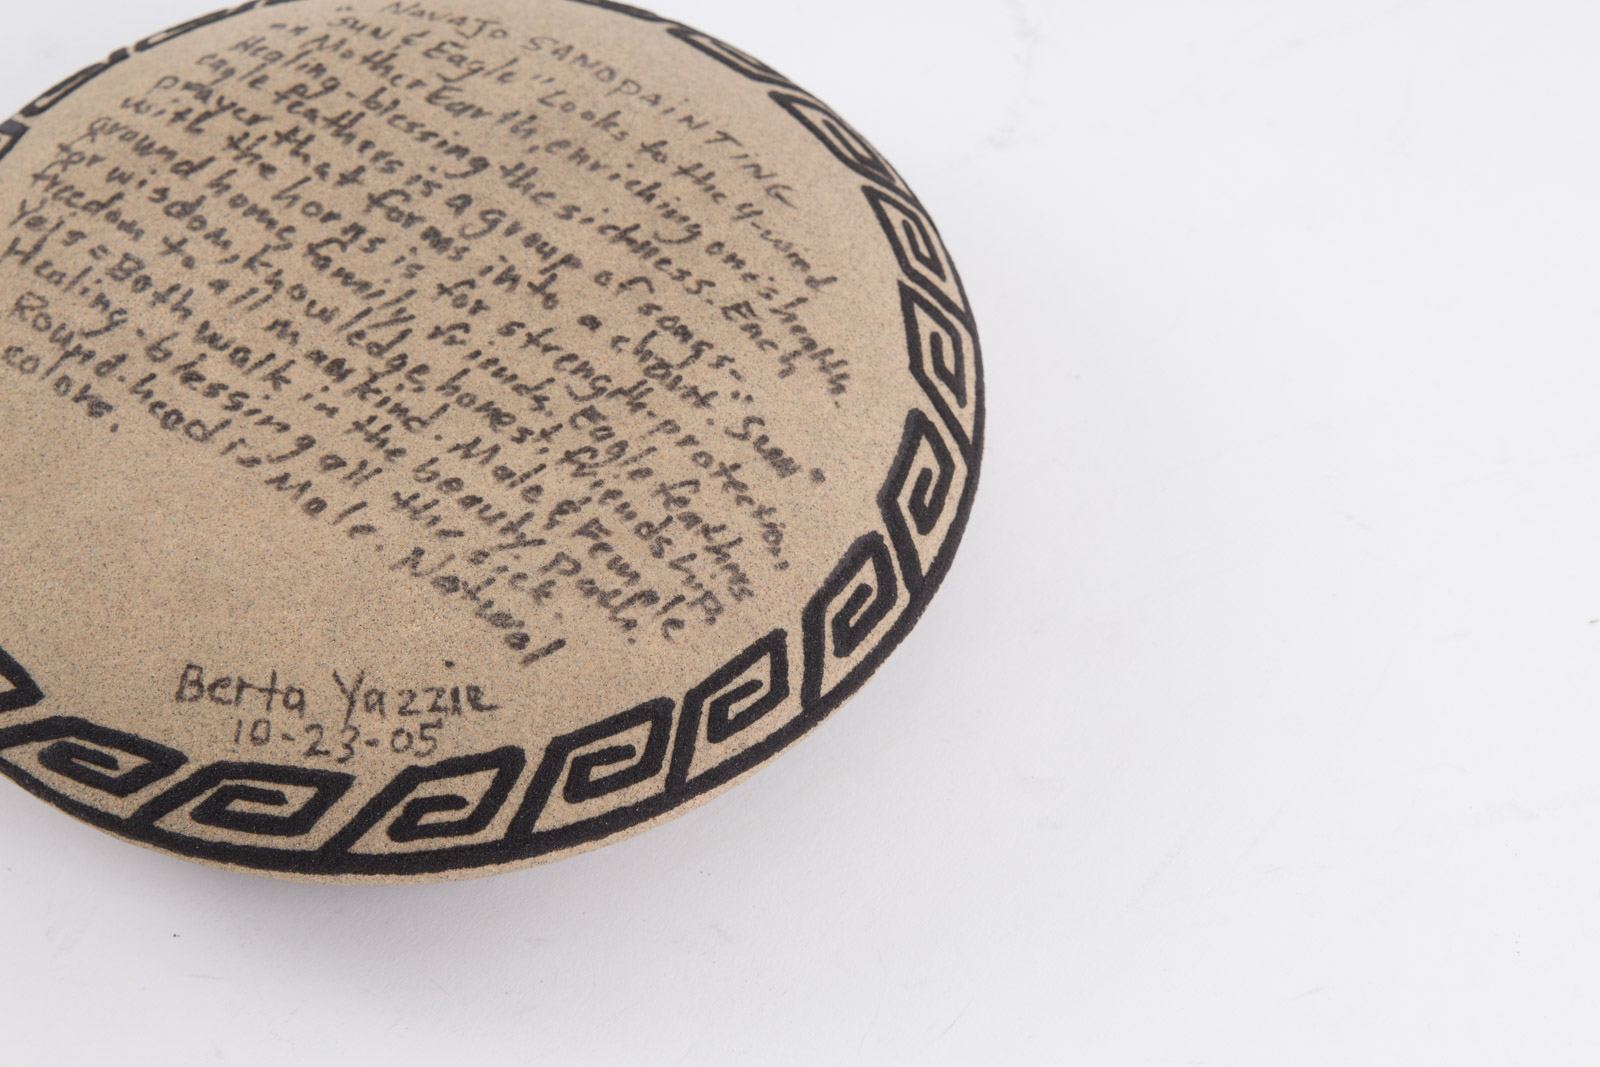 NAVAJO SANDPAINTING
"Sun & Eagle" Looks to the 4-wind
on Mother Earth, enriching one's health.
Healing-blessing the sickness. Each
eagle feathers is a group of songs-
prayer that forms into a chant. "Sun"
with the horns is for strength-protection,
around home, family, friends. Eagle feathers
for wisdom, knowledge, honest, friendship,
freedom to all mankind. Male & Female
Yei's = Both walk in the beauty Path.
Healing-blessing all the sick.
Round-head is Male. Natural
colors.
Berta Yazzie
10-23-05